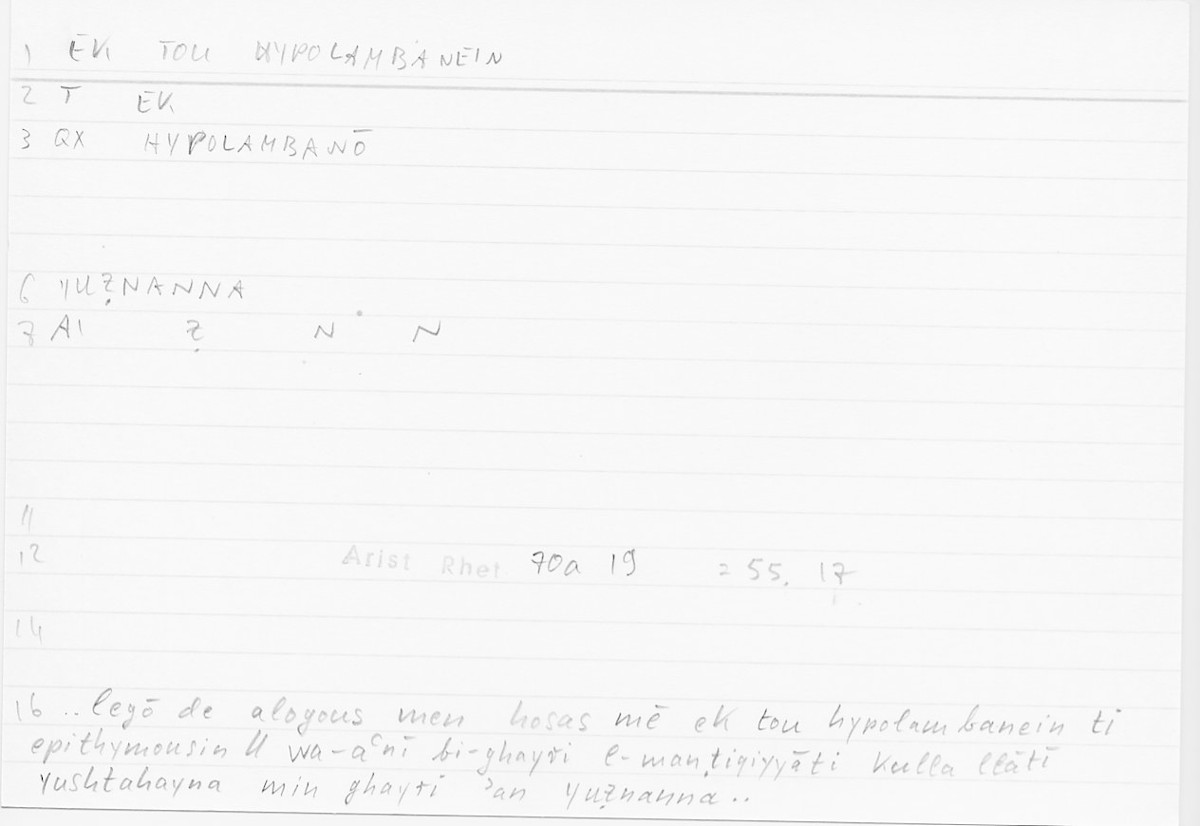 1 EK TOU HYPOLAMBANEIN
2 T EK
3 QX HYPOLAMBANŌ
6 YUẒNANNA
7 A1 Ẓ N N
11
12 Arist Rhet 70a 19 = 55. 17
14
16 .. legō de alogous men hosas mē ek tou hypolambanein ti
epithymousin || wa-aʿnī bi-ghayri l-manṭiqiyyāti kulla llātī
yushtahayna min ghayri ʾan yuẓnanna ..